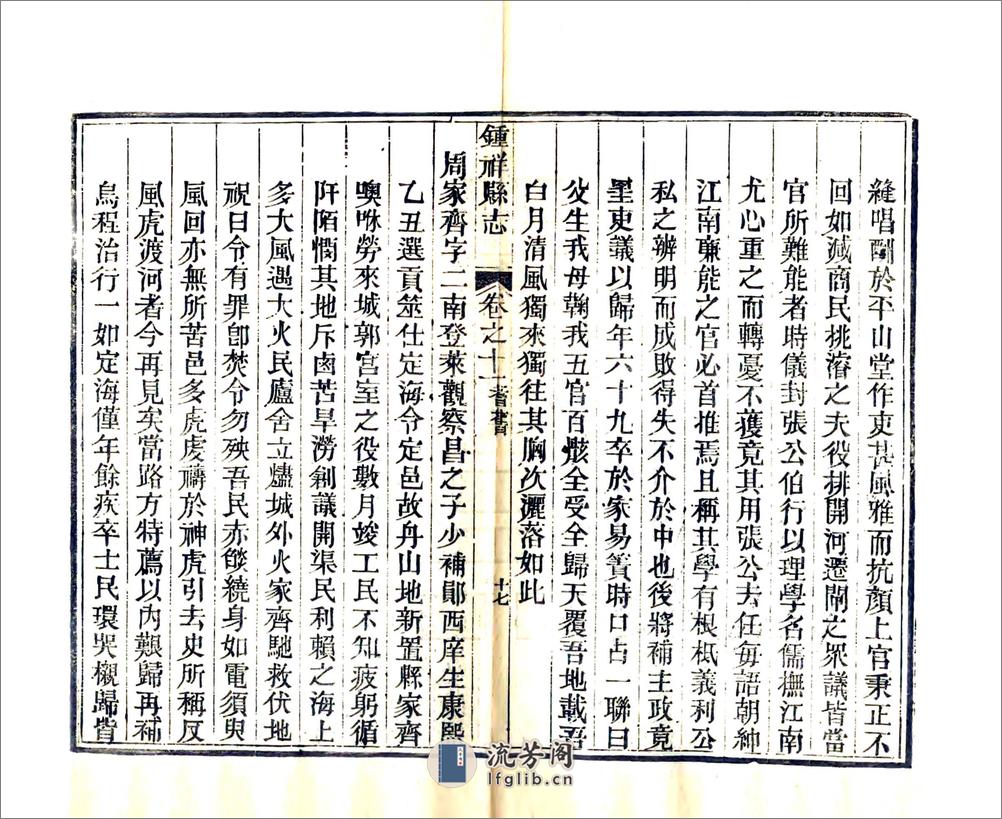 縫唱酬於平山堂作吏甚風雅而抗顏上官秉正不
回如減商民挑濬之夫役排開河遷閘之衆議皆當
官所難能者時儀封張公伯行以理學名儒撫江南
尤心重之而轉憂不獲竟其用張公去任每語朝紳
江南亷能之官必首推焉且稱其學有根柢義利公
私之辨明而成敗得失不介於中也後將補主政竟
里吏議以歸年六十九卒於家易簀時口占一聯曰
父生我母鞠我五官百骸全受全歸天覆吾地載吾
白月清風獨來獨往其胸次灑落如此
鍾祥縣志 卷之十一 耆舊 十七
周家齊字二南登萊觀察昌之子少補鄖西庠生康熙
乙丑選貢筮仕定海令定邑故舟山地新置縣家齊
噢咻勞來城郭宮室之役數月竣工民不知疲躬循
阡陌憫其地斥鹵苦旱澇創議開渠民利賴之海上
多大風遇大火民廬舍立燼城外火家齊馳救伏地
祝曰令有罪卽焚令勿殃吾民赤燄繞身如電須臾
風回亦無所苦邑多虎虔禱於神虎引去史所稱反
風虎渡河者今再見矣當路方特薦以內艱歸再補
烏程治行一如定海僅年餘疾卒士民環哭櫬歸皆
流芳阁
lfglib.cn